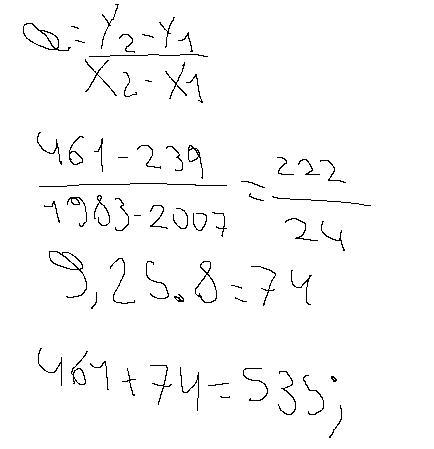 a = Y2 - Y1 / X2 - X1
461 - 239 / 1983 - 2007 = 222 / 24
9,25.8 = 74
461 + 74 = 535;